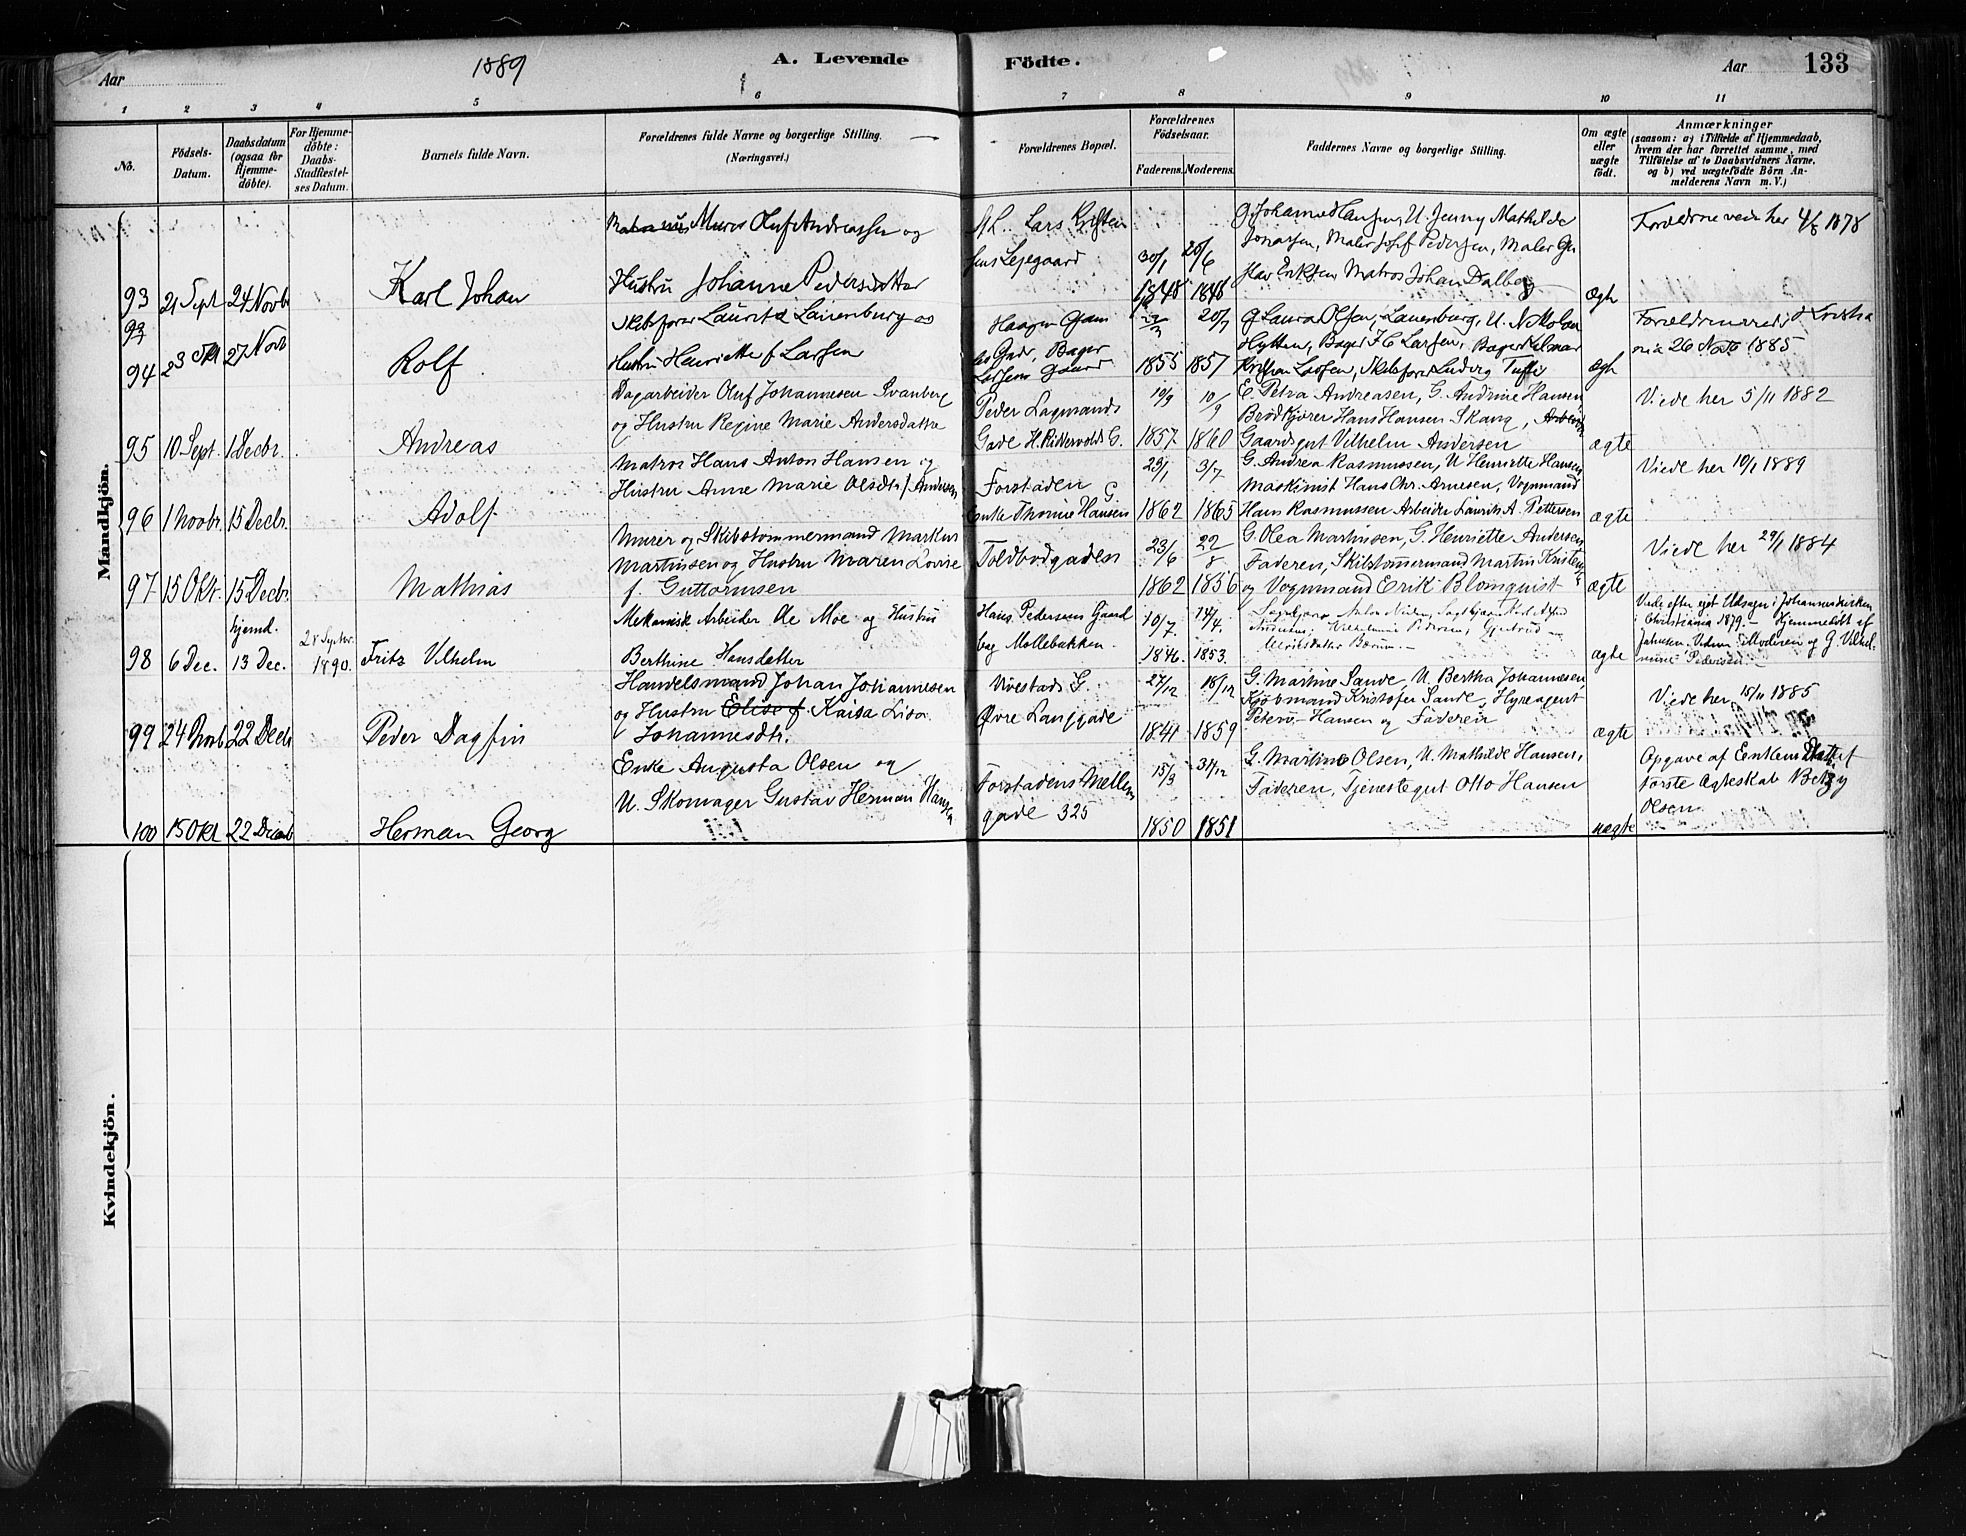 Aar 1889 A. Levende Födte. Aar 133
1 2 3 4 5 6 7 8 9 10 11
No.
Födsels-Datum.
Daabsdatum (ogsaa for Hjemme-döbte).
For Hjemme-döbte: Daabs-Stadfæstel-ses Datum.
Barnets fulde Navn.
Forældrenes fulde Navne og borgerlige Stilling.
(Næringsvei.)
Forældrenes Bopæl.
Forældrenes Födselsaar.
Faderens. Moderens.
Faddernes Navne og borgerlige Stilling.
Om ægte eller uægte födt.
Anmærkninger
(saasom: a) i Tilfælde af Hjemmedaab,
hvem der har forrettet samme, med
Tilföielse af to Daabsvidners Navne,
og b) ved uægtefödte Börn An-
melderens Navn m. V.)
Mandkjön.
93 21 Sept 24 Novb Karl Johan
Murer Oluf Andreassen og
Hustru Johanne Pedersdatter
Lars
Lejegaard
30/1 1848 20/6 1848
G Johanne Hansen, U. Jenny Mathilde
Jonassen, Maler Josef Pedersen, Maler Gu
Eriksen Matros Johan Dalberg
ægte
Forældrene viede her 4/8 1878
94 23 Okt 27 Novr Rolf
Skibsfører Lauritz Lauenburg og
Hustru Henriette f Larsen
Gade, Bager
Larsens Gaard
1855 20/7 1857
G Laura Olsen, Lauenburg, U. N.
Hytten, Bager H C Larsen, Bager
Larsen, Skibsfører Ludvig
ægte
26 Novb 1885
95 10 Sept. 1 Decbr. Andreas
Dagarbeider Oluf Johannesen Svanberg
og Hustru Regine Marie Andersdatter
Peder Lagmands
Gade H. Riddervolds G.
10/9 1857 10/9 1860
E. Petra Andreasen, G. Andrine Hansen
Brødkjører Hans Hansen Skavg,
Gaardsgut Vilhelm Andersen
ægte
Viede her 5/11 1882
96 1 Novbr. 15 Decbr. Adolf
Matros Hans Anton Hansen og
Hustru Anne Marie Olsdtr f Andersen
Forstaden G
Enke Thorine Hansen
29/1 1862 3/7 1865
G. Andrea Rasmussen, U Henriette Hansen
Maskinist Hans Chr. Arnesen, Vognmand
Hans Rasmussen Arbeider Laurits A. Pettersen
ægte
Viede her 10/1 1889
97 15 Oktr. 15 Decbr. Mathias
Murer og Skibstømmermand Markus
Martinsen og Hustru Maren Lovise
f. Guttormsen
Toldbodgaden
23/6 1862 22/8 1856
G. Olea Martinsen, G. Henriette Andersen
Faderen, Skibstømmermand Martin Kristens
og Vognmand Erik Blomquist
ægte
Viede her 29/1 1884
98 6 Dec. hjemd. 13 Dec. 28 Septbr. 1890. Fritz Vilhelm
Mekanisk Arbeider Ole Moe og Hustru
Berthine Hansdatter
Hans Pedersens Gaard
bag Møllebakken.
10/7. 1846. 14/4. 1853.
Vilhelmine Pedersen, Gjertrud
ægte
Viede efter eget Udsagn i Johanneskirken
i Christiania 1879. Hjemmedøbt af
Jahnsen. Vidner: Moderen og G. Vilhel-
mine Pedersen.
99 24 Novb. 22 Decbr Peder Dagfin
Handelsmand Johan Johannesen
og Hustru Elise f. Kaisa Lisa
Johannesdtr.
Vivestads G.
Øvre Langgade
27/12 1841 18/12 1859
G. Martine Sande, U. Bertha Johannesen
Kjøbmand Kristofer Sande, Hyreagent
Peter Hansen og Faderen
ægte
Viede her 15/11 1885
100 15 Okt 22 Decmb Herman Georg
Enke Augusta Olsen og
U. Skomager Gustav Herman Hansen
Forstadens Mellem
gade 325
15/3 1850 31/12 1851
G. Martine Olsen, U. Mathilde Hansen,
Faderen, Tjenestegut Otto Hansen
uægte
Opgave af Enkens Datter af
første Ægteskab Betzy
Olsen
Kvindekjön.